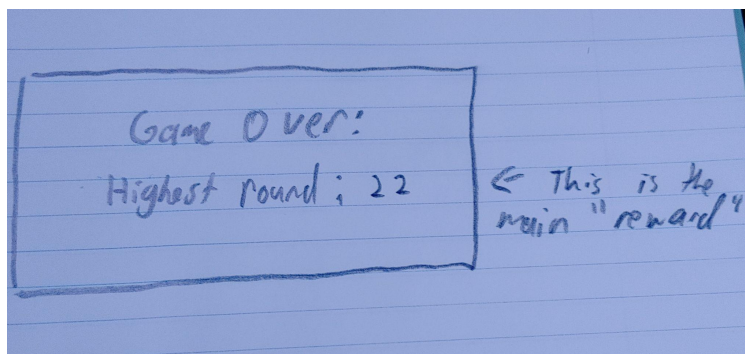 Game Over:
Highest round: 22
← This is the
main "reward"